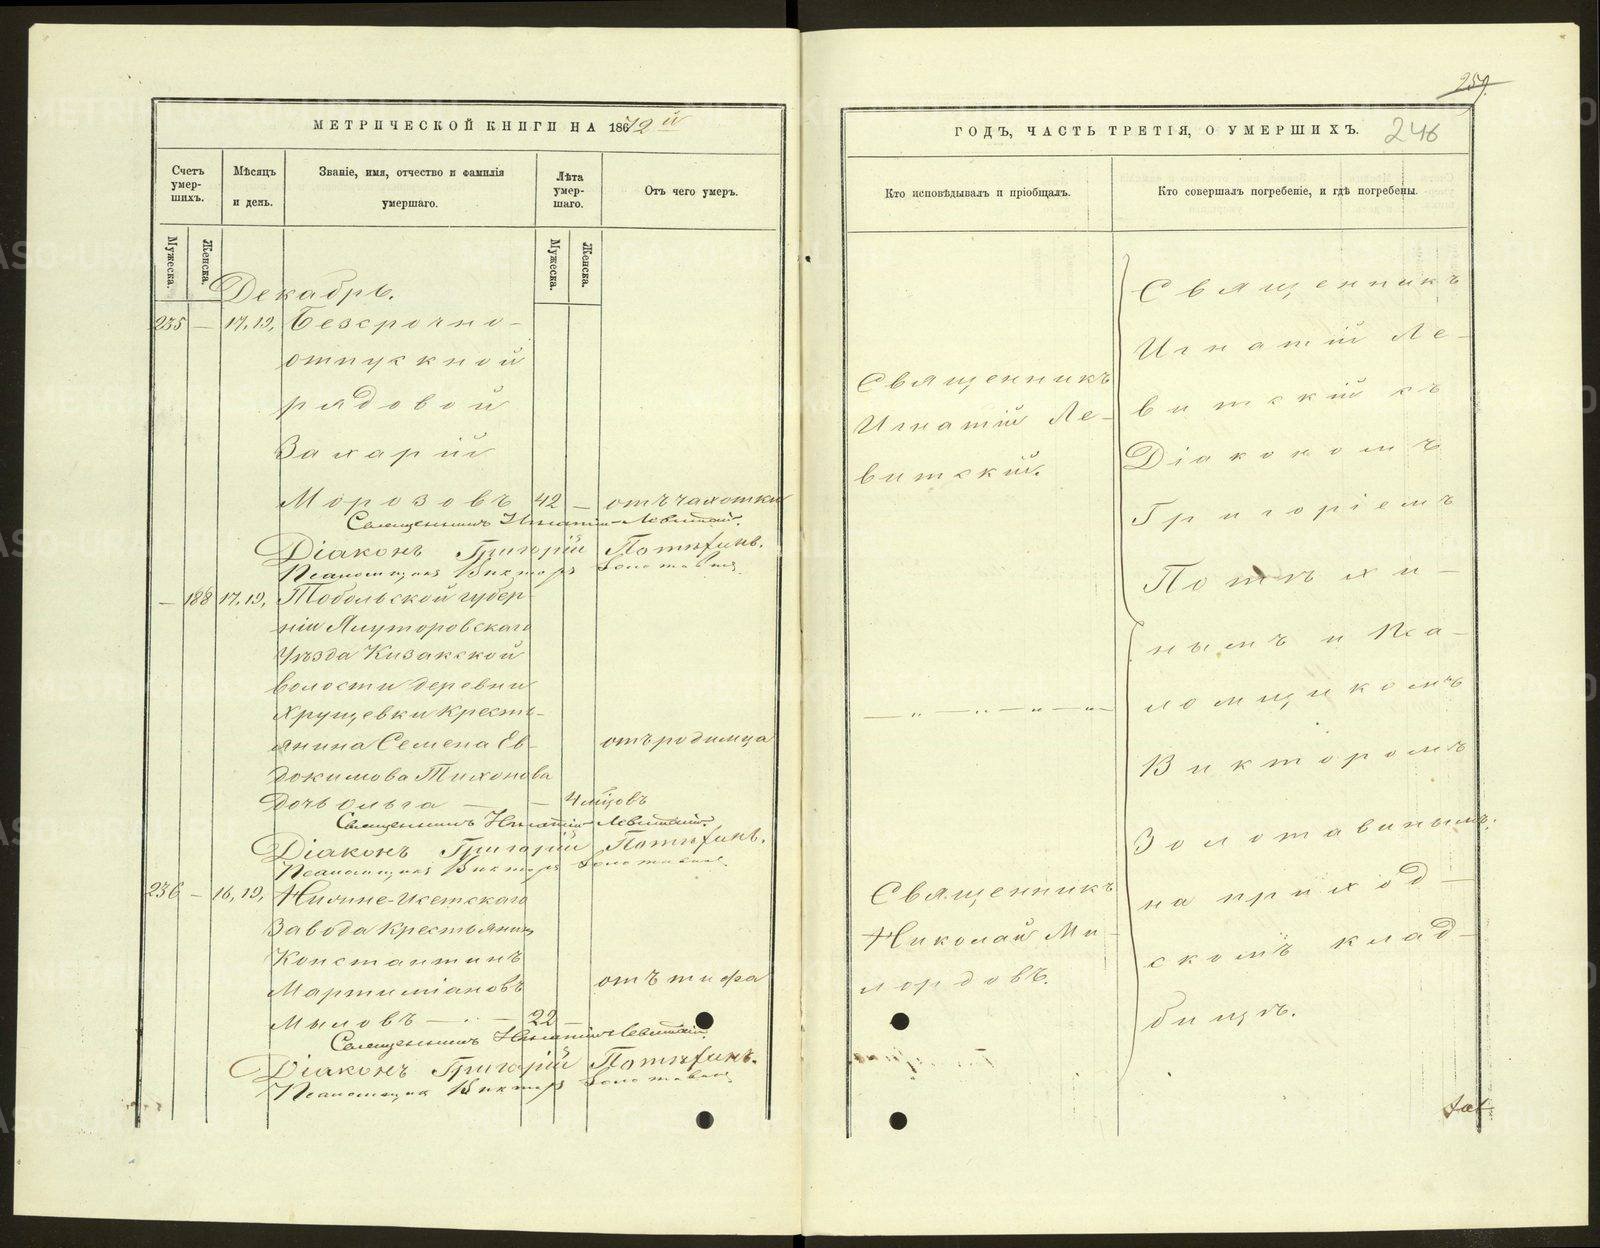 МЕТРИЧЕСКОЙ КНИГИ НА 1872й
Счетъ умер-шихъ.
Мужеска.
Женска.
Мѣсяцъ и день.
Званіе, имя, отчество и фамилія умершаго.
Лѣта умер-шаго.
Мужеска.
Женска.
Отъ чего умеръ.
Декабрь.
235 — 17,19, Безсрочно-
отпускной
рядовой
Захарій
Морозовъ 42 — отъ чахотки
Священникъ Игнатій Левитскій.
Діаконъ Григорій Потѣхинъ.
Псаломщикъ Викторъ Золотавинъ
— 188 17,19, Тобольской губер-
ніи Ялуторовскаго
Уѣзда Кизакской
волости деревни
Хрущевки Кресть-
янина Семена Ев- отъ родимца
докимова Тихонова
дочь Ольга — — 4 мѣсцовъ
Священникъ Игнатій Левитскій.
Діаконъ Григорій Потѣхинъ.
Псаломщикъ Викторъ Золотавинъ
236 — 16,19, Нижне-Исетскаго
Завода Крестьянинъ
Константинъ
Мартиміановъ отъ тифа
Мыловъ — 22 —
Священникъ Игнатій Левитскій
Діаконъ Григорій Потѣхинъ.
Псаломщикъ Викторъ Золотавинъ
259.
ГОДЪ, ЧАСТЬ ТРЕТІЯ, О УМЕРШИХЪ. 246
Кто исповѣдывалъ и пріобщалъ.
Священникъ
Игнатій Ле-
витскій.
— „ — „ — „ — „ —
Священникъ
Николай Ми-
лордовъ.
Кто совершалъ погребеніе, и гдѣ погребены.
Священникъ
Игнатій Ле-
витскій съ
Діакономъ
Григоріемъ
Потѣхи-
нымъ и Пса-
ломщикомъ
Викторомъ
Золотавинымъ;
на приход-
скомъ клад-
бищѣ.